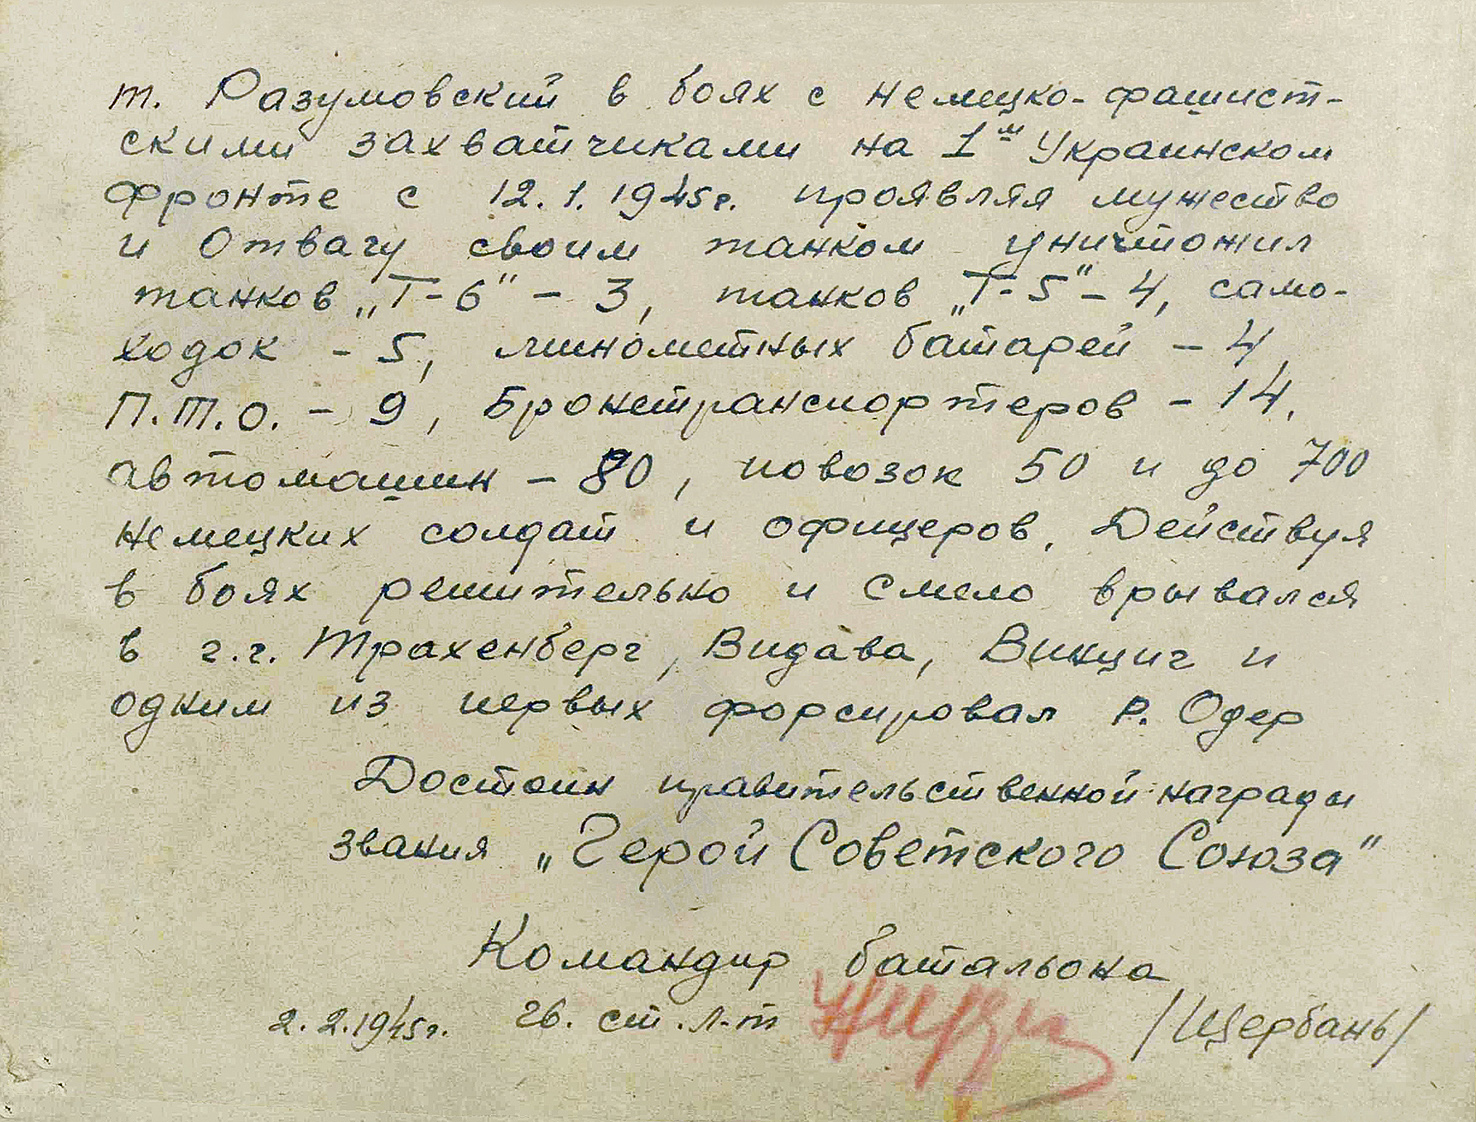 т. Разумовский в боях с немецко-фашист-
скими захватчиками на 1м Украинском
фронте с 12.1.1945г. проявляя мужество
и отвагу своим танком уничтожил
танков „Т-6" – 3, танков „Т-5" – 4, само-
ходок – 5, минометных батарей – 4,
П.Т.О. – 9, Бронетранспортеров – 14,
автомашин – 80, повозок 50 и до 700
немецких солдат и офицеров. Действуя
в боях решительно и смело врывался
в г.г. Трахенберг, Видава, Винциг и
одним из первых форсировал р. Одер
Достоин правительственной награды
звания „Герой Советского Союза"
Командир батальона
2.2.1945г. гв. ст. л-т /Щербань/